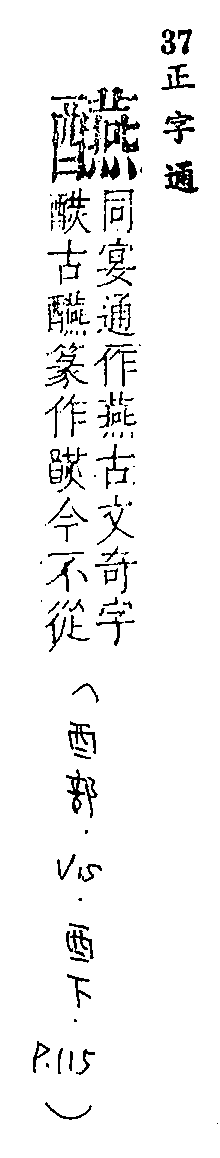 37正字通
醼
同宴通作燕古文奇字
古醼篆作今不從
(酉部.V15.酉下.P.115)